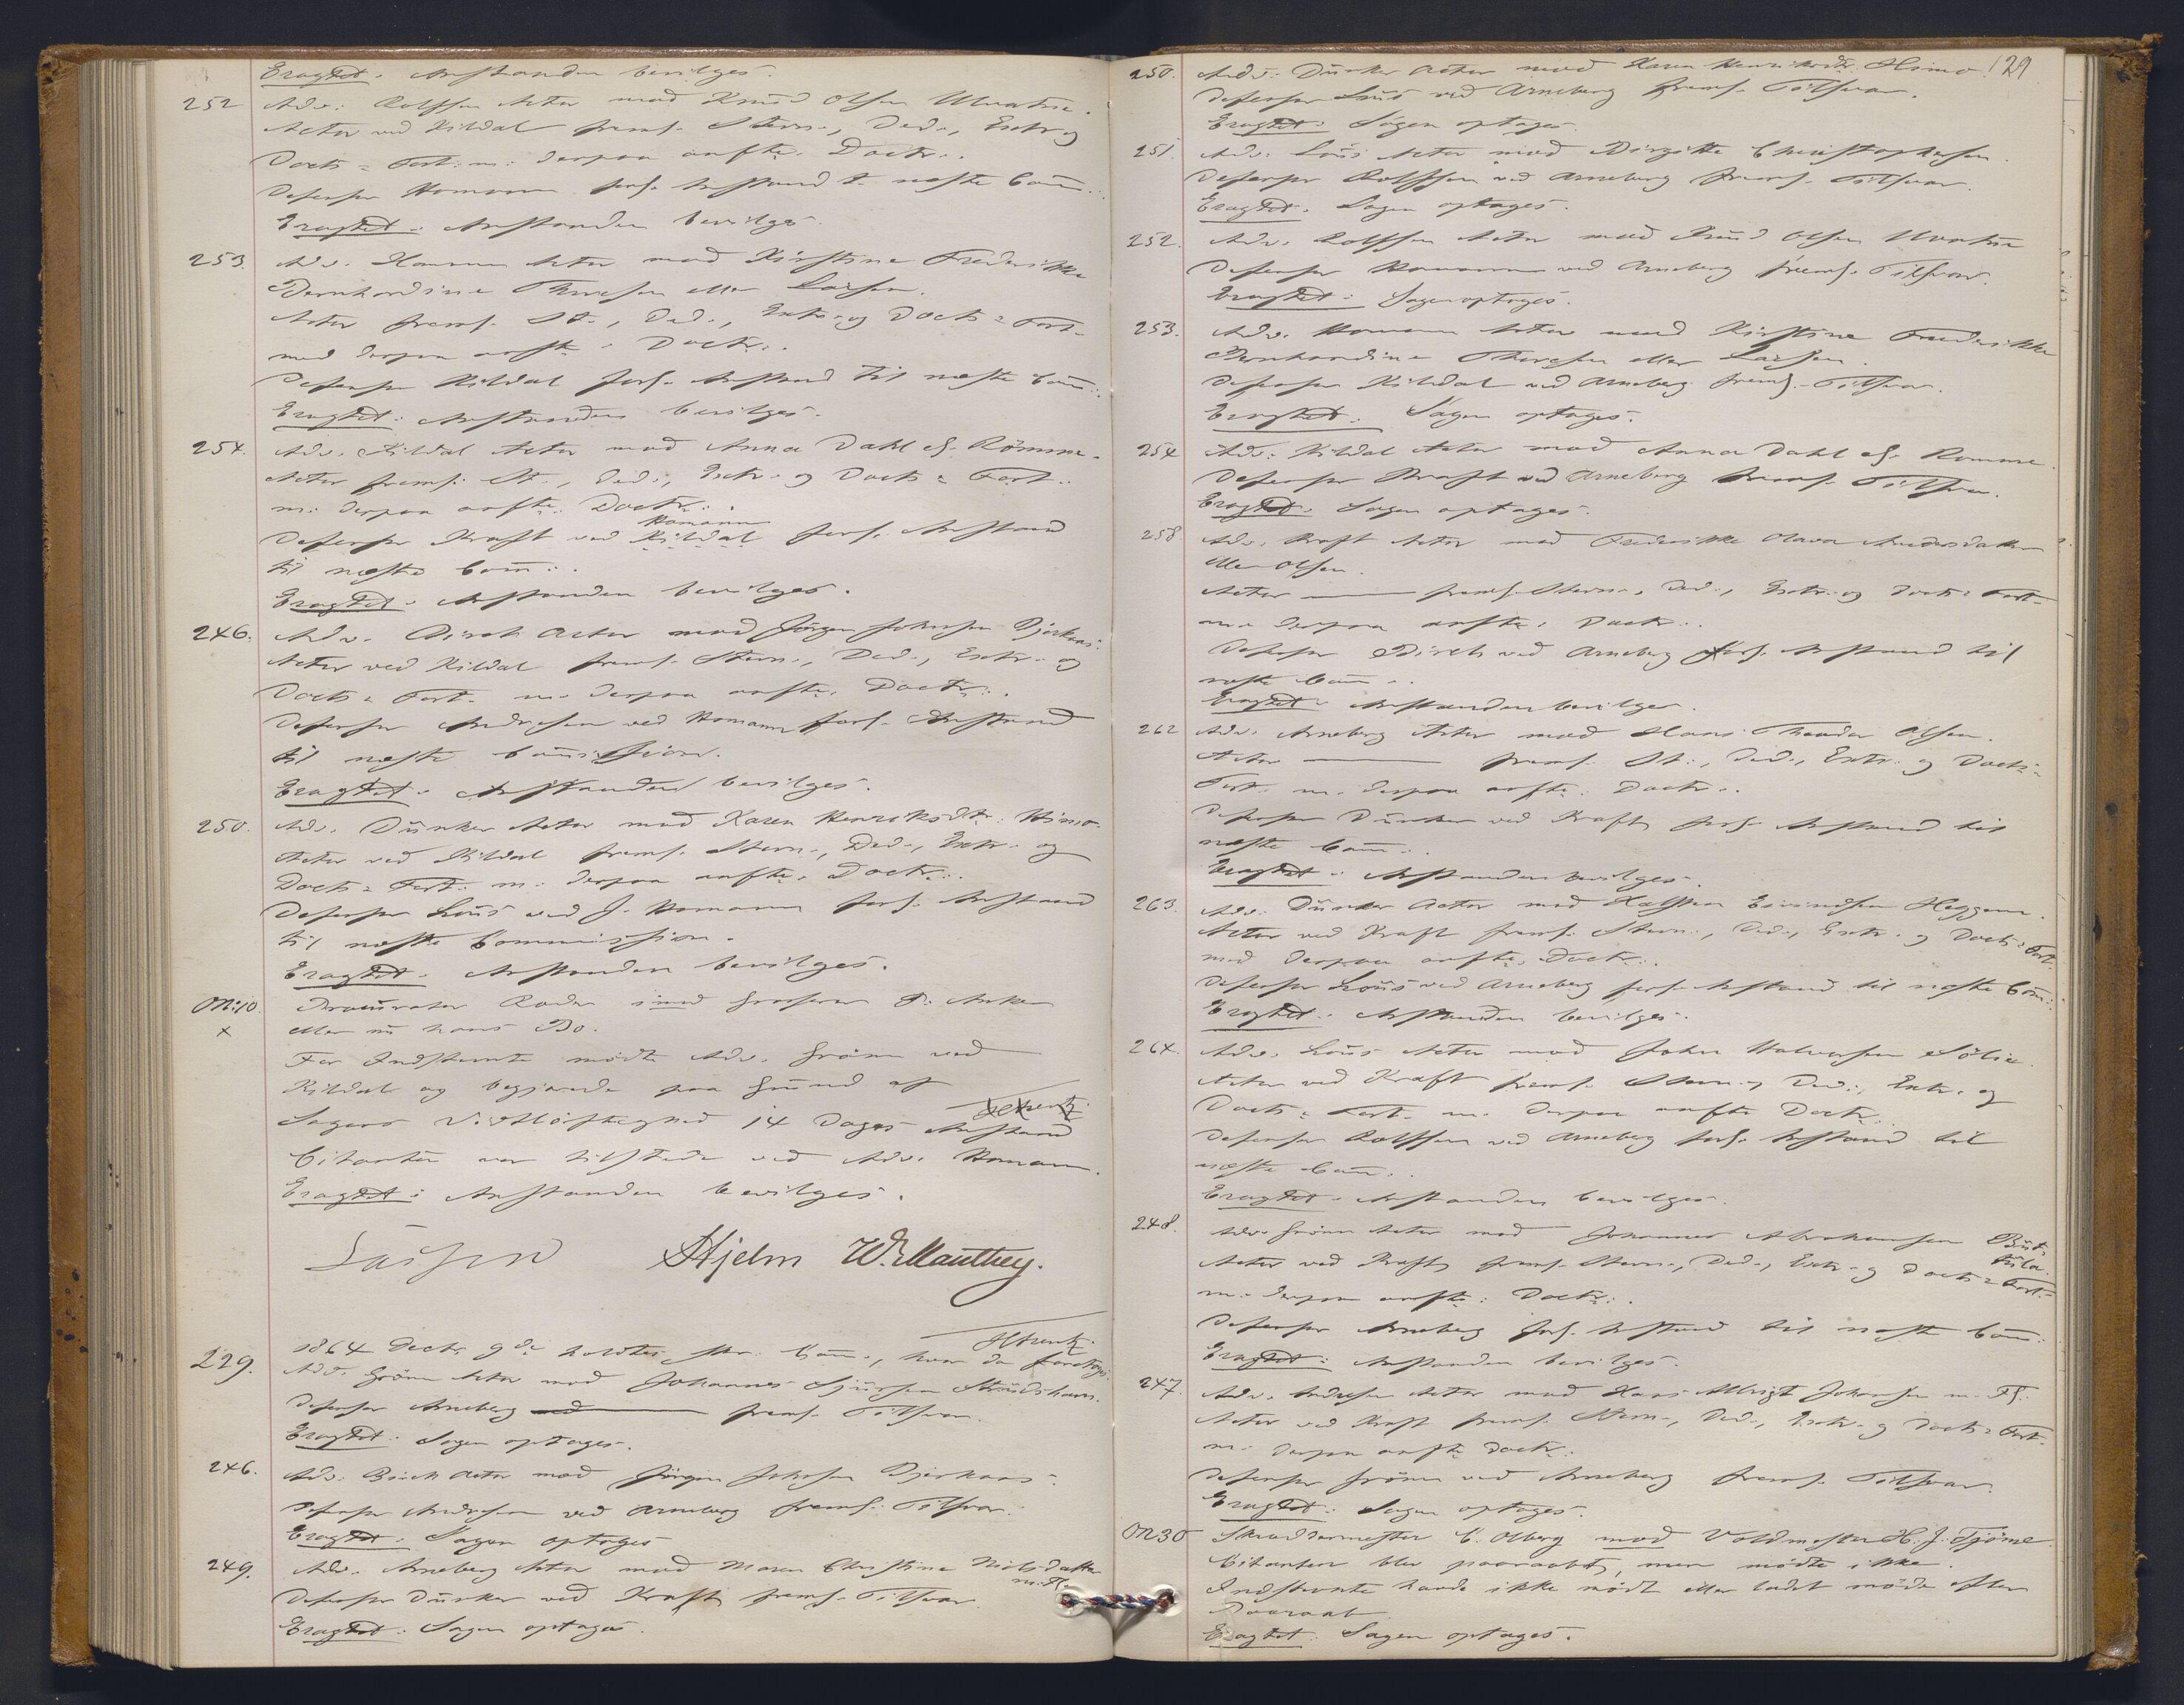 Eragtet: Anstanden bevilges.
252 Adv: Rolffsen Actor mod Knud Olsen
Actor ved Kildal freml. Stevn., Ded., Extr. og
Docts = Fort: m: derpaa anfte. Doctr:.
Defensor Homann forl. Anstand t. næste Comm:.
Eragtet: Anstanden bevilges.
253. Adv. Homann Actor mod Kirstine Fredrikke
Bernhardine Thoresen eller Larsen.
Actor freml. St., Ded., Extr. og Docts = Fort.
med derpaa anfte. Doctr:.
Defensor Kildal forl. Anstand til næste Com:.
Eragtet: Anstanden bevilges.
254. Adv. Kildal Actor mod Anna Dahl el. Römme.
Actor freml. St., Ded., Extr. og Docts = Fort.
m: derpaa anfte. Doctr:.
Homann
Defensor Kraft ved Kildal forl. Anstand
til næste Com:.
Eragtet: Anstanden bevilges.
246. Adv. Birch Actor mod Jörgen Johnsen Bjerkaas.
Actor ved Kildal freml. Stevn., Ded., Extr. og
Docts = Fort. m: derpaa anfte. Doctr:.
Defensor Andresen ved Homann forl. Anstand
til næste Comission.
Eragtet: Anstanden bevilges.
250. Adv. Dunker Actor mod Karen Henriksdtr: Himo.
Actor ved Kildal freml. Stevn., Ded., Extr. og
Docts = Fort: m: derpaa anfte. Doctr:.
Defensor Lous ved J. Homann forl. Anstand
til næste Commission.
Eragtet: Anstanden bevilges.
ON:10. Procurator Roder imod Grosserer P. Anker
x eller nu hans Bo.
For Indstevnte mödte Adv. Grönn ved
Kildal og begjærede paa Grund af
Sagens Vidtlöftighed 14 Dages Anstand
Citanten var tilstede ved Adv. Homann.
Eragtet: Anstanden bevilges.
Larsen Hjelm W. Manthey.
1864 Decbr 9de holdtes Com., hvor da foretoges:
229. Adv. Grönn Actor mod Johannes Sjursen
Defensor Arneberg ved freml. Tilsvar.
Eragtet: Sagen optages.
246. Adv: Birch Actor mod Jörgen Johnsen Bjerkaas.
Defensor Andresen ved Arneberg freml. Tilsvar.
Eragtet: Sagen optages
249. Adv. Arneberg Actor mod Maren Christine Nielsdatter
m. Fl.
Defensor Dunker ved Kraft freml. Tilsvar
Eragtet: Sagen optages.
129
250. Adv: Dunker Actor mod Karen Henriksdtr. Himo.
Defensor Lous ved Arneberg freml. Tilsvar.
Eragtet: Sagen optages.
251. Adv. Lous Actor mod Birgitte Christophersen.
Defensor Rolffsen ved Arneberg freml. Tilsvar.
Eragtet: Sagen optages.
252. Adv. Rolffsen Actor mod Knud Olsen
Defensor Homann ved Arneberg freml. Tilsvar.
Eragtet: Sagen optages.
253. Adv. Homann Actor mod Kirstine Fredrikke
Bernhardine Thoresen eller Larsen.
Defensor Kildal ved Arneberg freml. Tilsvar.
Eragtet: Sagen optages.
254 Adv: Kildal Actor mod Anna Dahl el. Romme.
Defensor Kraft ved Arneberg freml. Tilsvar.
Eragtet: Sagen optages.
258. Adv. Kraft Actor mod Fredrikke Olava Andersdatter
eller Olsen.
Actor freml. Stevn., Ded., Extr. og Docts = Fort.
m: derpaa anfte. Doctr:.
Defensor Birch ved Arneberg forl. Anstand til
næste Com:.
Eragtet: Anstanden bevilges.
262 Adv. Arneberg Actor mod Hans Theodor Olsen.
Actor freml. St:, Ded., Extr. og Docts =
Fort. m: derpaa anfte: Doctr:.
Defensor Dunker ved Kraft forl. Anstand til
næste Com:.
Eragtet: Anstanden bevilges.
263. Adv: Dunker Actor mod Eivindsen Heggene.
Actor ved Kraft freml. Stevn., Ded., Extr. og Docts = Fort.
med derpaa anfte. Doctr:.
Defensor Lous ved Arneberg forl. Anstand til næste Com:.
Eragtet: Anstanden bevilges.
264. Adv. Lous Actor mod John Halvorsen Sölie.
Actor ved Kraft freml. Stevn., Ded., Extr. og
Docts = Fort. m: derpaa anfte Doctr:.
Defensor Rolffsen ved Arneberg forl. Anstand til
næste Com:.
Eragtet: Anstanden bevilges.
248. Adv. Grönn Actor mod Johannes Abrahamsen
Actor ved Kraft freml. Stevn., Ded., Extr. og Docts = Fort.
m: derpaa anfte: Doctr:.
Defensor Arneberg forl. Anstand til næste Com:
Eragtet: Anstanden bevilges.
247. Adv. Andresen Actor mod Hans Albrigt Johansen m. Fl.
Actor ved Kraft freml. Stevn., Ded., Extr. og Docts = Fort.
m: derpaa anfte Doctr:.
Defensor Grönn ved Arneberg freml. Tilsvar.
Eragtet: Sagen optages.
ON30 Skræddermester C. Olberg mod Voldmester H. J. Tjörne.
Citanten blev paaraabt, men mödte ikke.
Indstevnte havde ikke mödt eller ladet möde efter
Paaraab.
Eragtet: Sagen optages.